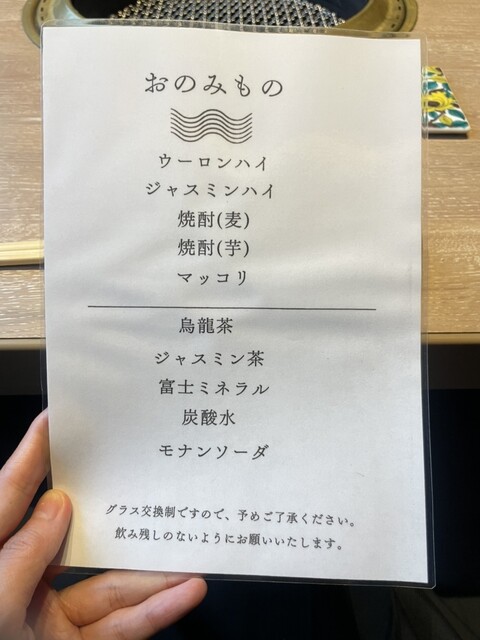 おのみもの
ウーロンハイ
ジャスミンハイ
焼酎(麦)
焼酎(芋)
マッコリ
烏龍茶
ジャスミン茶
富士ミネラル
炭酸水
モナンソーダ
グラス交換制ですので、予めご了承ください。
飲み残しのないようにお願いいたします。